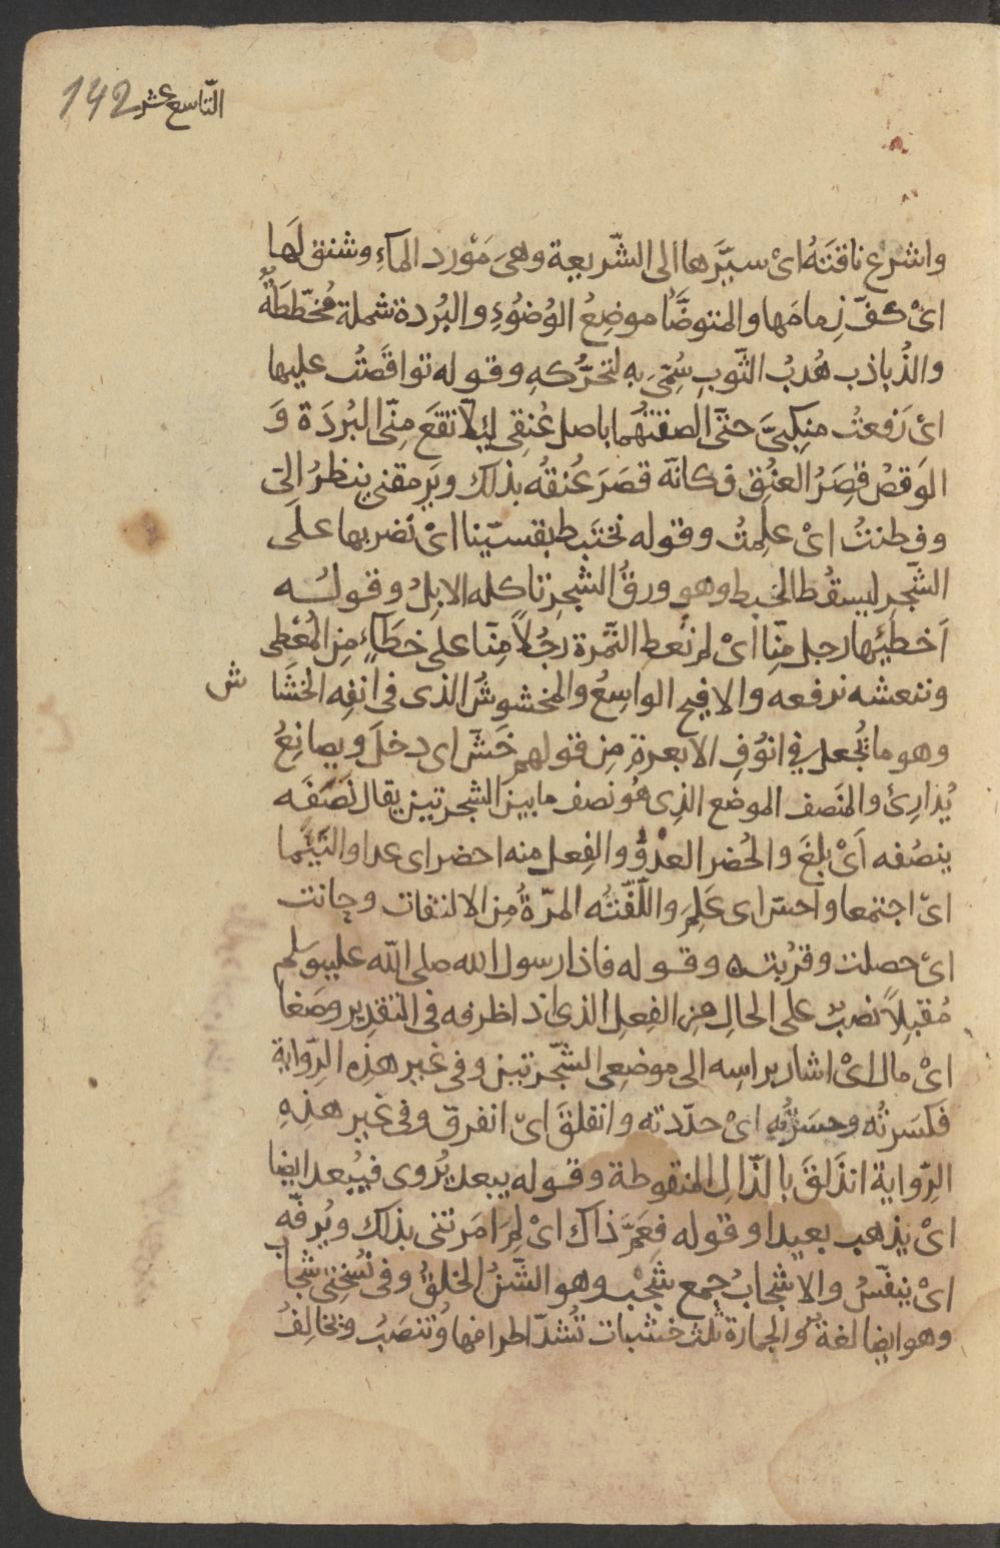 التّاسع عشر 142
واشرع ناقتَهُ اىْ سيَّرها الى الشّريعة وهىَ مَوْرد المآءِ وشنق لَها
اىْ كفّ زِمامَها والمتوضَّأ موضِعُ الوُضُوْءِ والبُردة شملة مُخطّطَةٌ
والذُباذب هُدبُ الثّوبِ سُمّىَ بِهِ لتحرُّكهِ وقوله تواقَصْتُ عليها
اىْ رَفعتُ منكِبَىَّ حتّى الصقتهُما باصل عُنقِى ليلّا تقَعَ مِنّى البُردَة وَ
الوَقصْ قِصَرُ العنُق فكانّه قصَرَ عُنقُه بذلك ويَرمقنى ينظرُ الىّ
وفطِنتُ اىْ علِمتُ وقوله نختَبط بقسيّنا اىْ نضربها على
الشّجر ليسقُط الخبط وهو ورقُ الشّجرِ تاكله الابِلُ وقولُه
اَخطِئَها رجل مِنّا اىْ لم نُعطِ التّمرة رجُلاً مِنّا على خطَآءٍ مِن المُعْطِى
وننعشه نرفعه والافيح الواسِعُ والمخشوشُ الذى فى انفِه الخشَا ش
وهو ما يُجعل فِى انوُفِ الابعرةِ مِن قولهم خَشّ اى دخلَ ويصانِعُ
يُدارِئ والمَنصف الموضع الذِى هُو نصف ما بين الشجرتين يقال نَصَفَه
ينصُفه اَىْ بلغَ والحُضر العدْوُ والفِعل منه احضر اى عدا والتَئَما
اىّ اجتمعا واحسّ اى عَلِمَ واللّفْتَه المرّةُ مِن الالتفات وحانت
اىْ حصلت وقرُبت وقوله فاذا رسول الله صلى اللّه عليه وسلم
مُقبِلاً نصبٌ على الحالِ مِن الفِعل الذى اذا ظرفه فى التقدِير وصَغا
اىْ مال اىْ اشار براسِه الى موضِعى الشّجرتين وفى غير هذِه الرّواية
فكسَرتُه وحسَرتُه اىْ حدّدته وانفلقَ اىّ انفرقَ وفى غيرِ هذِهِ
الرّواية انذَلقَ بالذّالِ المنقوطة وقوله يبعد يُروى فيُبعد ايضا
اىْ يذهب بعيدا وقوله فعَمَّ ذاك اىْ لِمَ امَرتنى بذلك ويُرفّه
اىْ ينفّسُ والاشجابُ جمع شجْب وهو الشّنُ الخلقُ وفى نُسخِتى شجاب
وهو ايضا لغةٌ والحِمارة ثلث خشبات تُشدّ اطرافها وتُنصَبُ ويخالِفُ